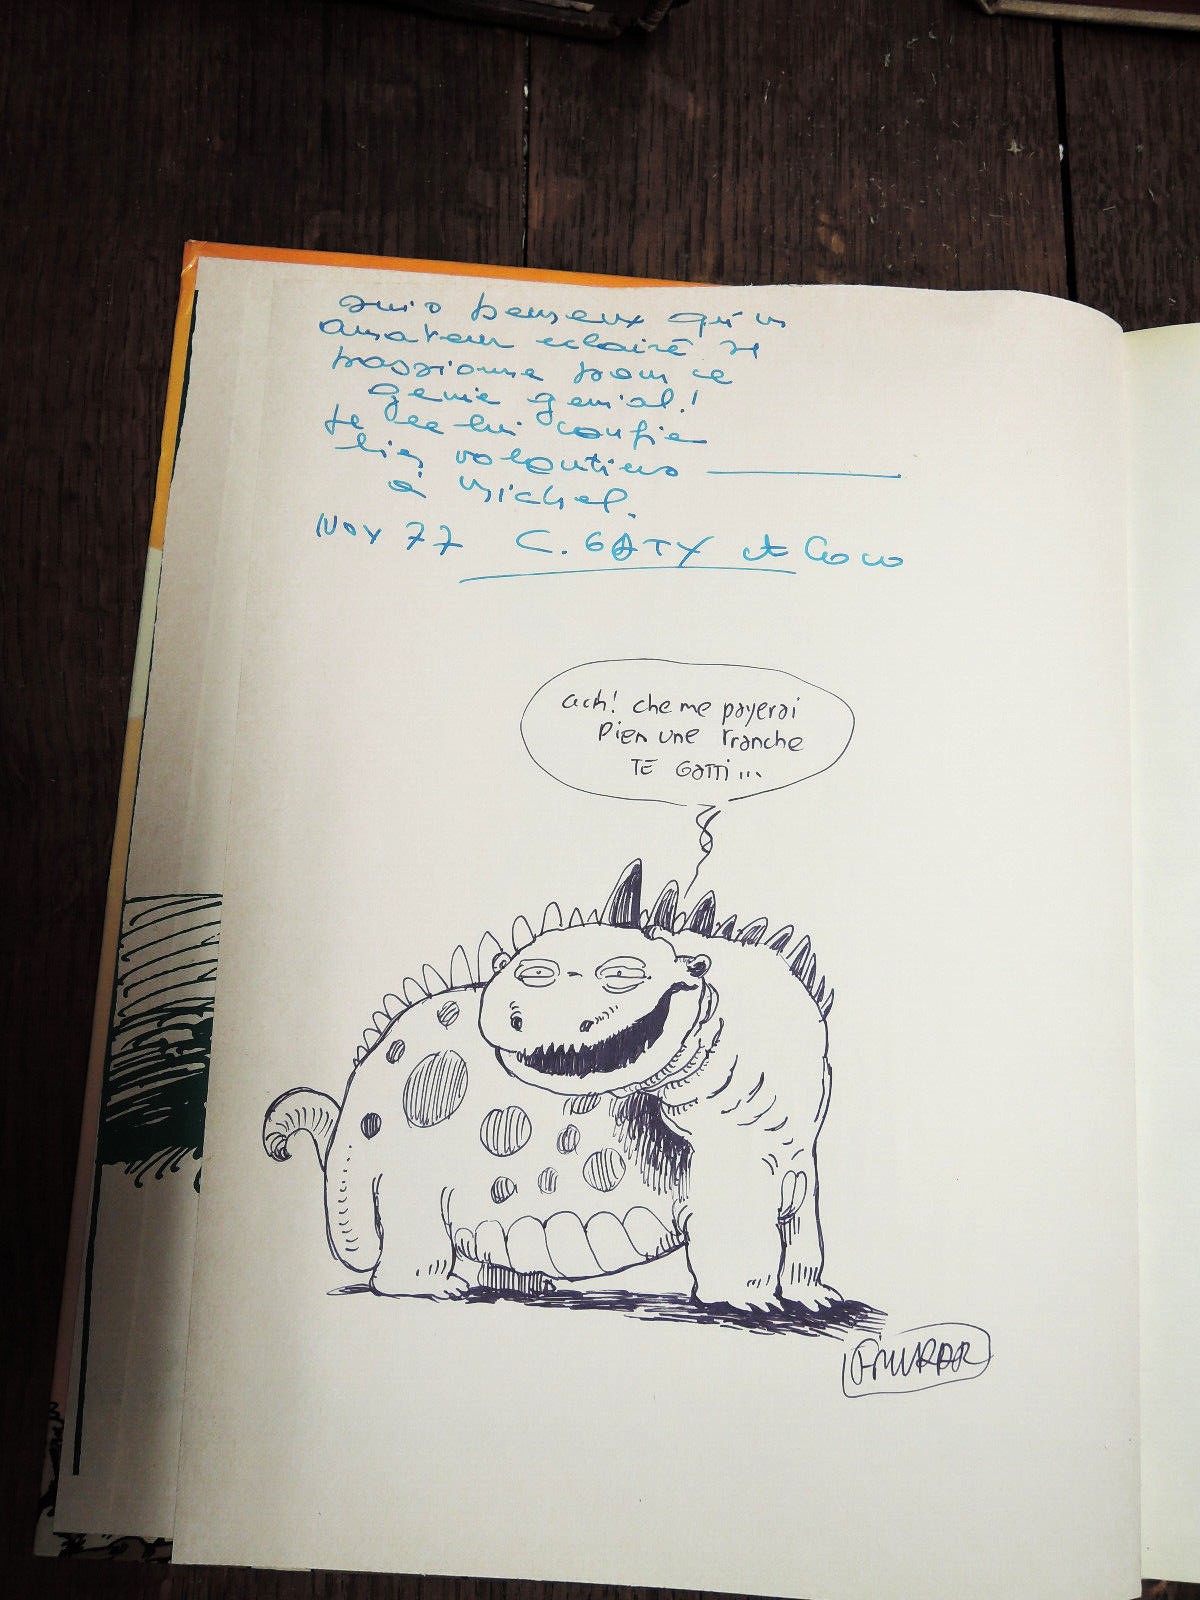 suis heureux qu'un
amateur eclairé se
passionne pour ce
genie genial!
Je le lui confie
bien volontiers
à Michel.
NOV 77 C. GATY et Coco
ach! che me payerai
pien une tranche
TE GATTI...